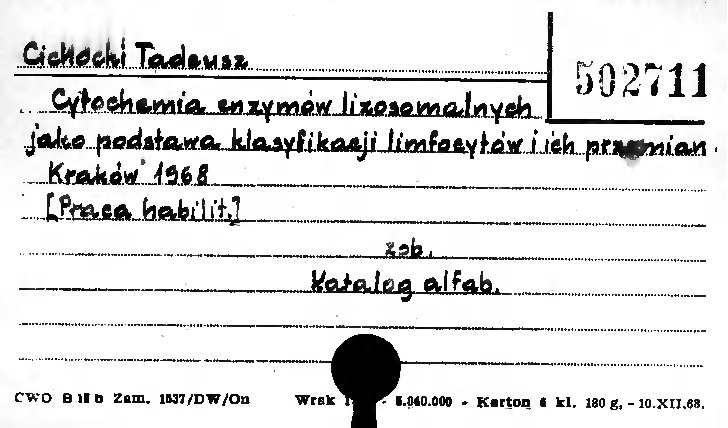 Cichocki Tadeusz
502711
Cytochemia enzymów lizosomalnych
jako podstawa klasyfikacji limfocytów i ich przemian
Kraków 1968
[Praca habilit.]
zob.
Katalog alfab.
CWO Zam. 1537/DW/On Wrsk 5.040.000 - Karton 6 kl. 180 g, - 10.XII.68.